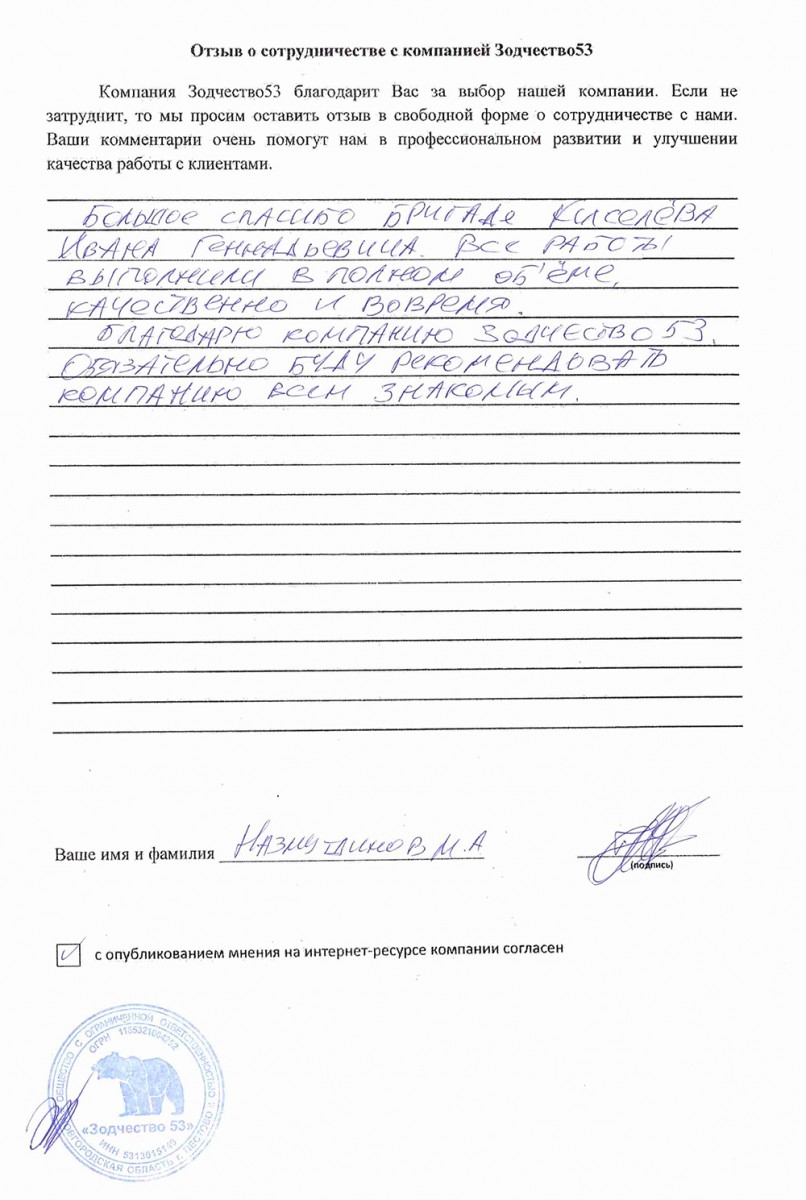 Отзыв о сотрудничестве с компанией Зодчество53
Компания Зодчество53 благодарит Вас за выбор нашей компании. Если не
затруднит, то мы просим оставить отзыв в свободной форме о сотрудничестве с нами.
Ваши комментарии очень помогут нам в профессиональном развитии и улучшении
качества работы с клиентами.
Большое спасибо бригаде Киселёва
Ивана Геннадьевича. Все работы
выполнили в полном об'ёме,
качественно и вовремя.
Благодарю компанию Зодчество 53.
Обязательно буду рекомендовать
компанию всем знакомым.
Ваше имя и фамилия Назмутдинов М.А
(подпись)
с опубликованием мнения на интернет-ресурсе компании согласен
ОБЩЕСТВО С ОГРАНИЧЕННОЙ ОТВЕТСТВЕННОСТЬЮ
ОГРН
«Зодчество 53»
ИНН
НОВГОРОДСКАЯ ОБЛАСТЬ г. ПЕСТОВО